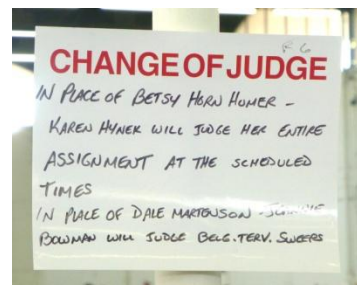 R 6
CHANGE OF JUDGE
IN PLACE OF BETSY HORN HUMER -
KAREN HYNEK WILL JUDGE HER ENTIRE
ASSIGNMENT AT THE SCHEDULED
TIMES
IN PLACE OF DALE MARTENSON -
BOWMAN WILL JUDGE BELG. TERV. SWEEPS